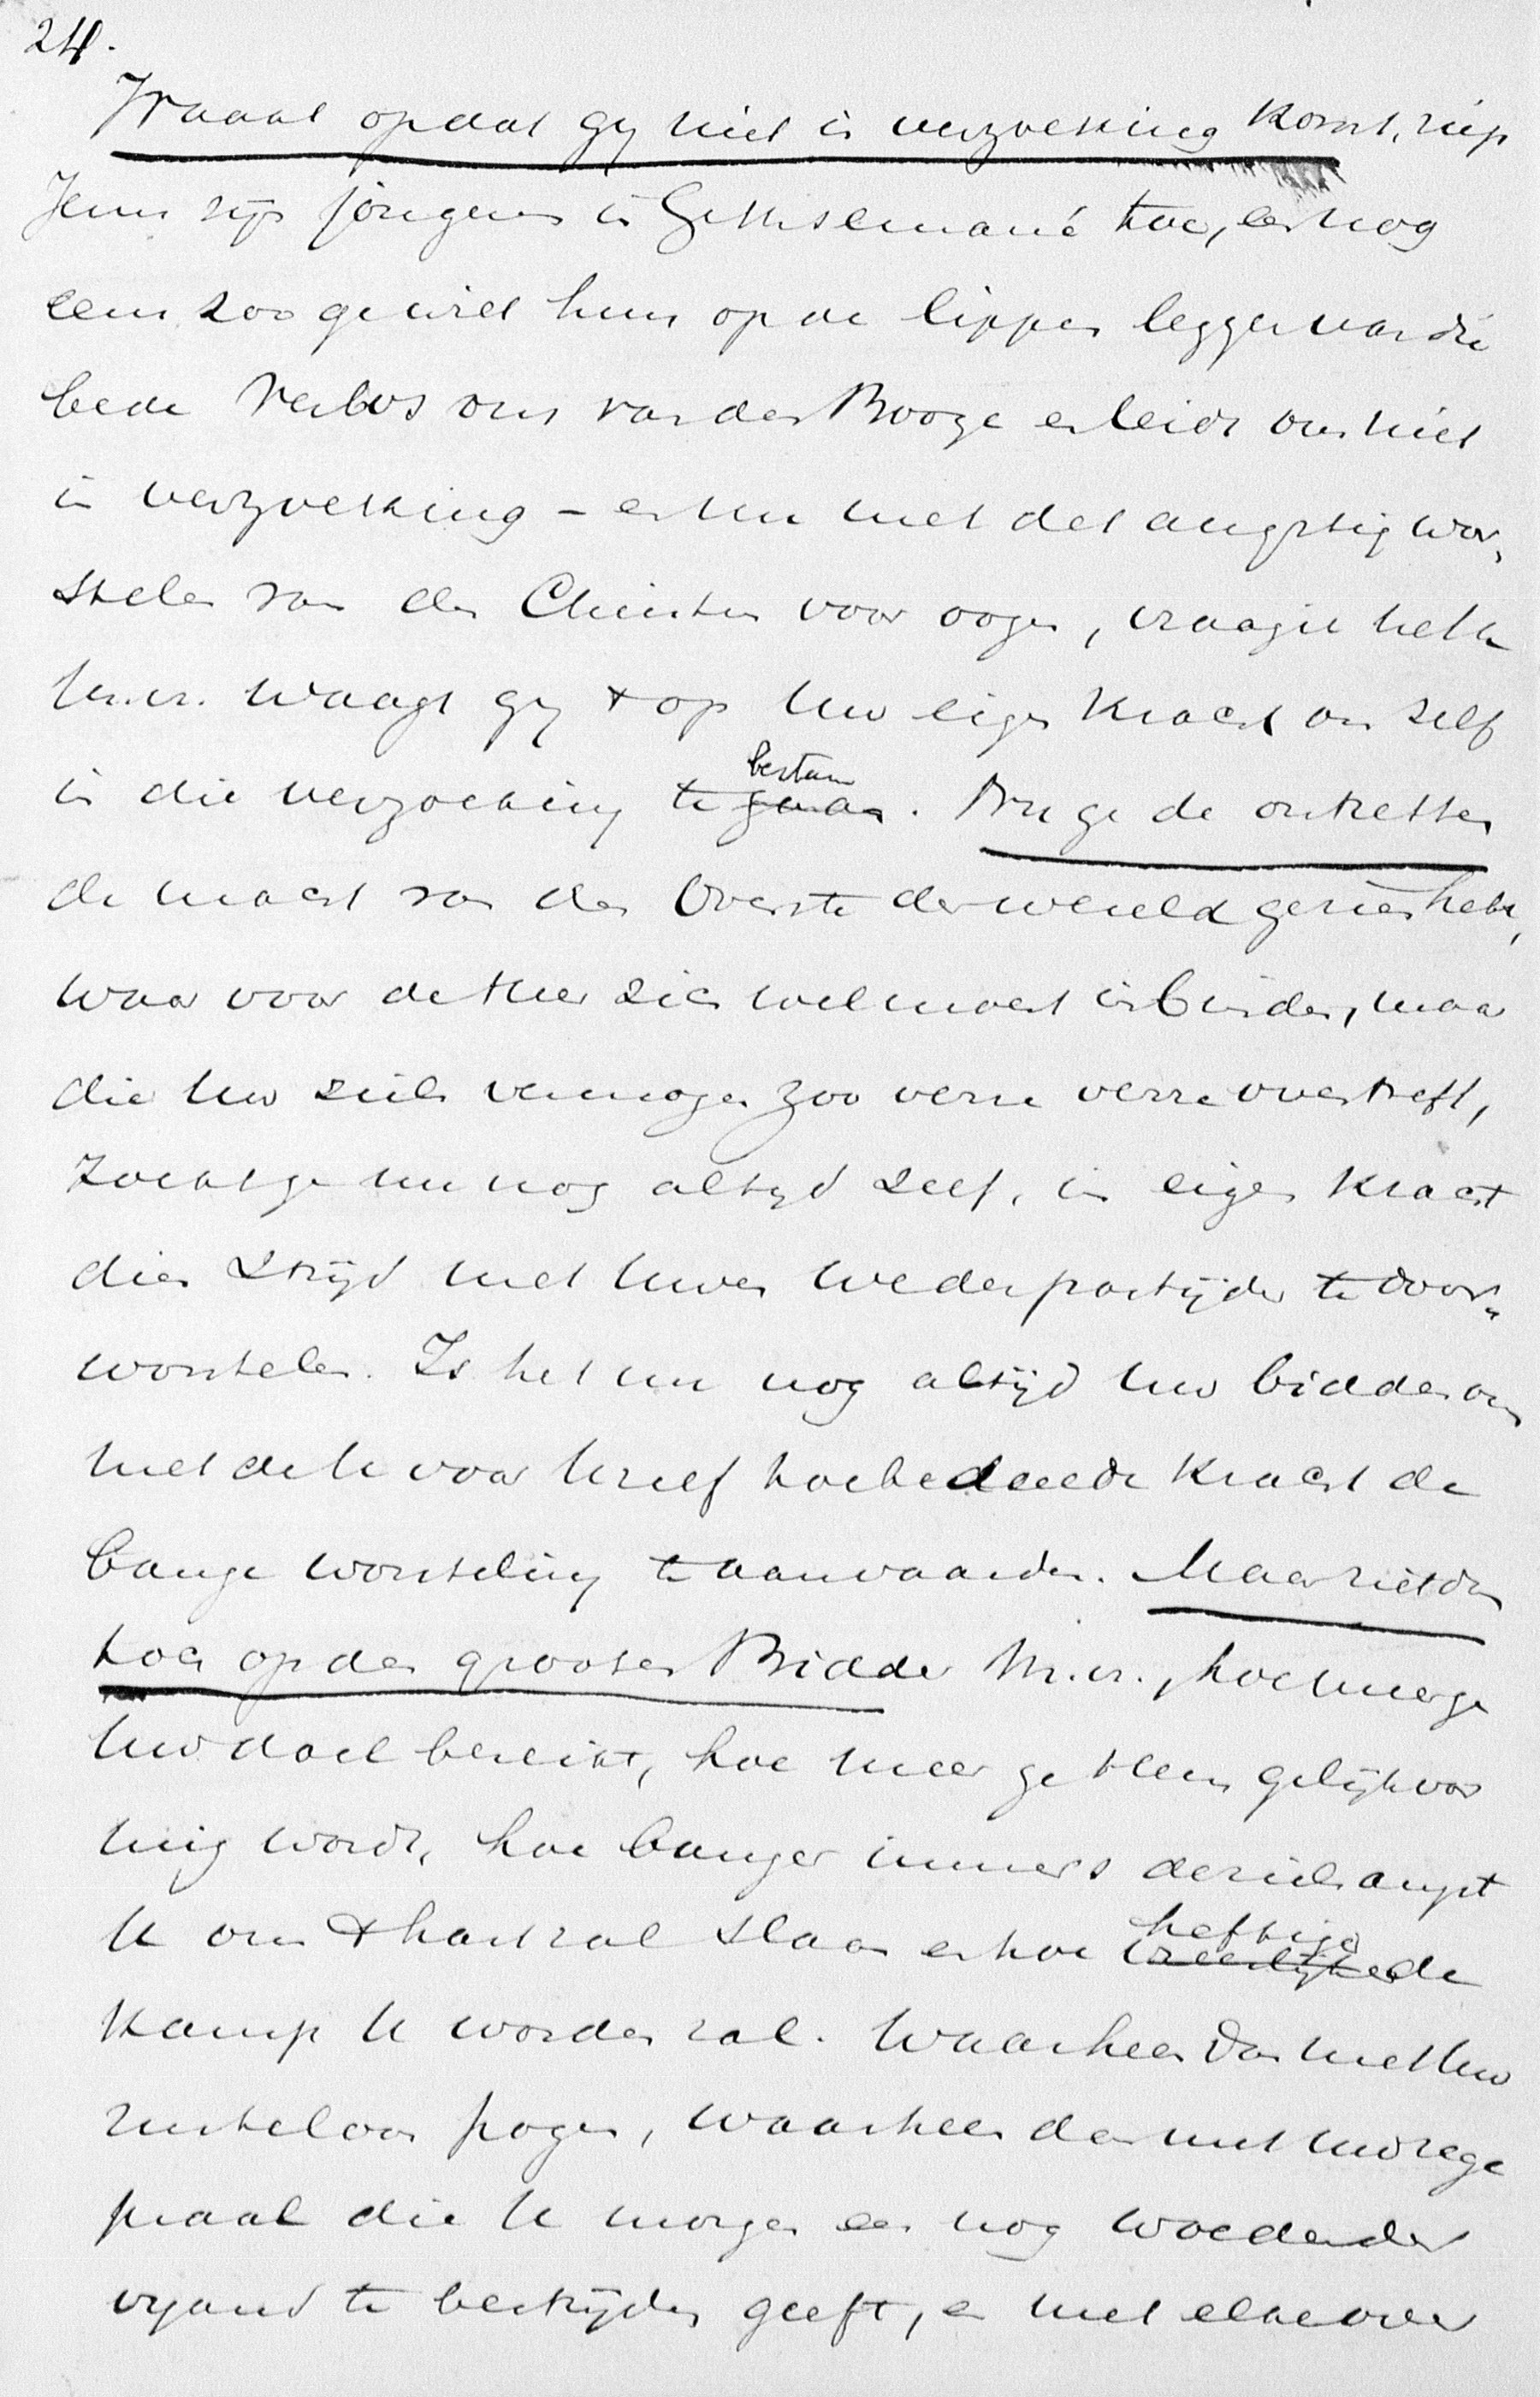 24.
Waakt opdat gy niet in verzoeking komt, riep
Jezus zijn jongeren in Gethsemané toe, en nog
eens zoo ge wilt hun op de lippen leggen van die
bede Verlos ons van den Booze en leidt ons niet
in verzoeking – en nu met dat angstig wor„
stelen van den Christus voor oogen, vraag ik
M.v. waagt gy 't op Uw eigen kracht om zelf
in die verzoeking te gaan bestaan. Nu ge de ontzetten
de macht van den Overste der wereld gezien hebt,
waar voor de Heer zich wel moest inbinden, maar
die Uw ziels vermogen zoo verre verre overtreft,
zoekt ge nu nog altyd zelf, in eigen kracht
dien strijd met Uwen wederpartijder te door„
worstelen. Is het nu nog altijd Uw bidden om
met de U voor Uzelf toebedeelde kracht de
bange worsteling te aanvaarden. Maar ziet dan
toch op den grooten Bidder M.v., hoe meer ge
Uw doel bereikt, hoe meer ge Hem gelijkvor
mig wordt, hoe banger immers de zielsangst
U om 't hart zal slaan en hoe vreeslijker heftiger de
kamp U worden zal. Waarheen dan met Uw
rusteloos pogen, waarheen dan met Uw zege
praal die U morgen een nog woedender
vyand te bestrijden geeft, en met elke over